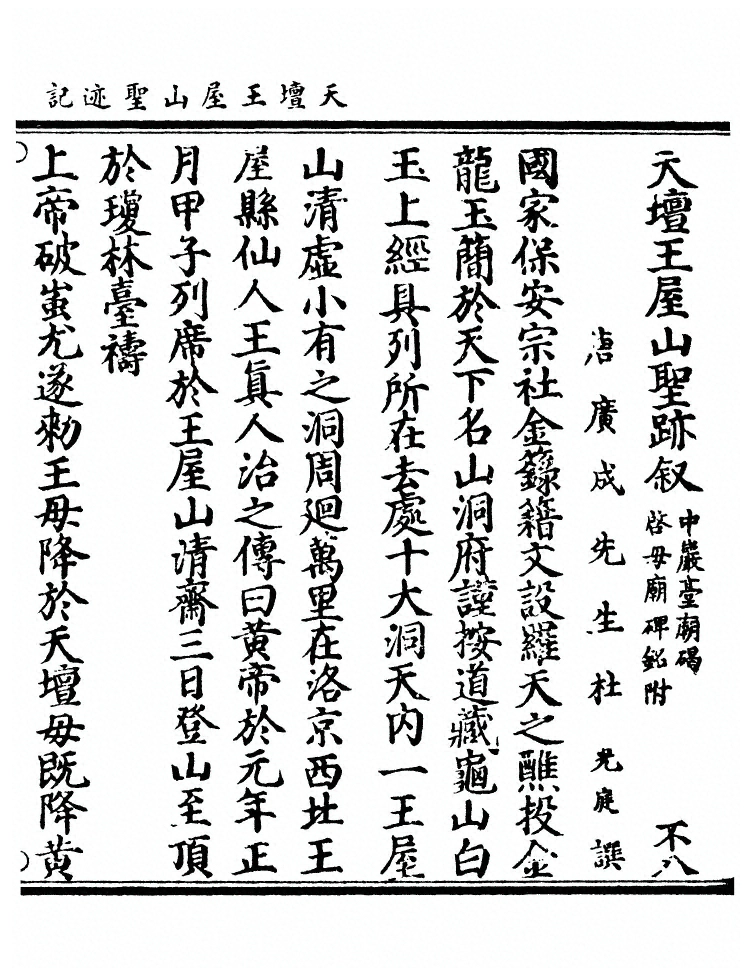 天壇王屋山聖迹記
天壇王屋山聖跡叙 中巖臺廟碣 啓母廟碑銘附 不八
唐廣成先生杜光庭譔
國家保安宗社金籙籍文設羅天之醮投金
龍玉簡於天下名山洞府謹按道藏龜山白
玉上經具列所在去處十大洞天内一王屋
山清虛小有之洞周廻萬里在洛京西北王
屋縣仙人王眞人治之傳曰黄帝於元年正
月甲子列席於王屋山清齋三日登山至頂
於瓊林臺禱
上帝破蚩尤遂勑王母降於天壇母既降黄